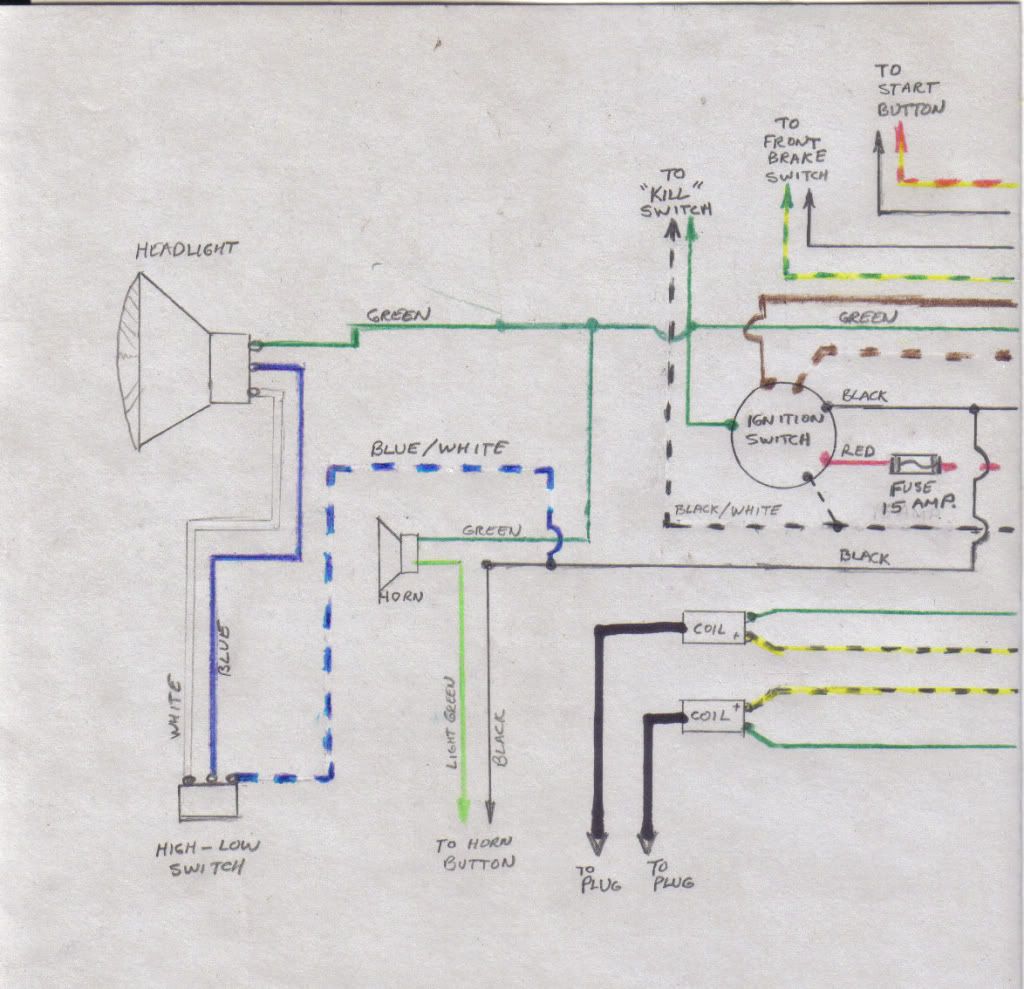 TO
START
BUTTON
TO
FRONT
BRAKE
SWITCH
TO
"KILL"
SWITCH
HEADLIGHT
GREEN
GREEN
BLACK
IGNITION
SWITCH
RED
FUSE
15 AMP.
BLUE/WHITE
BLACK/WHITE
GREEN
BLACK
HORN
COIL +
COIL +
WHITE
BLUE
LIGHT GREEN
BLACK
HIGH-LOW
SWITCH
TO HORN
BUTTON
TO
PLUG
TO
PLUG